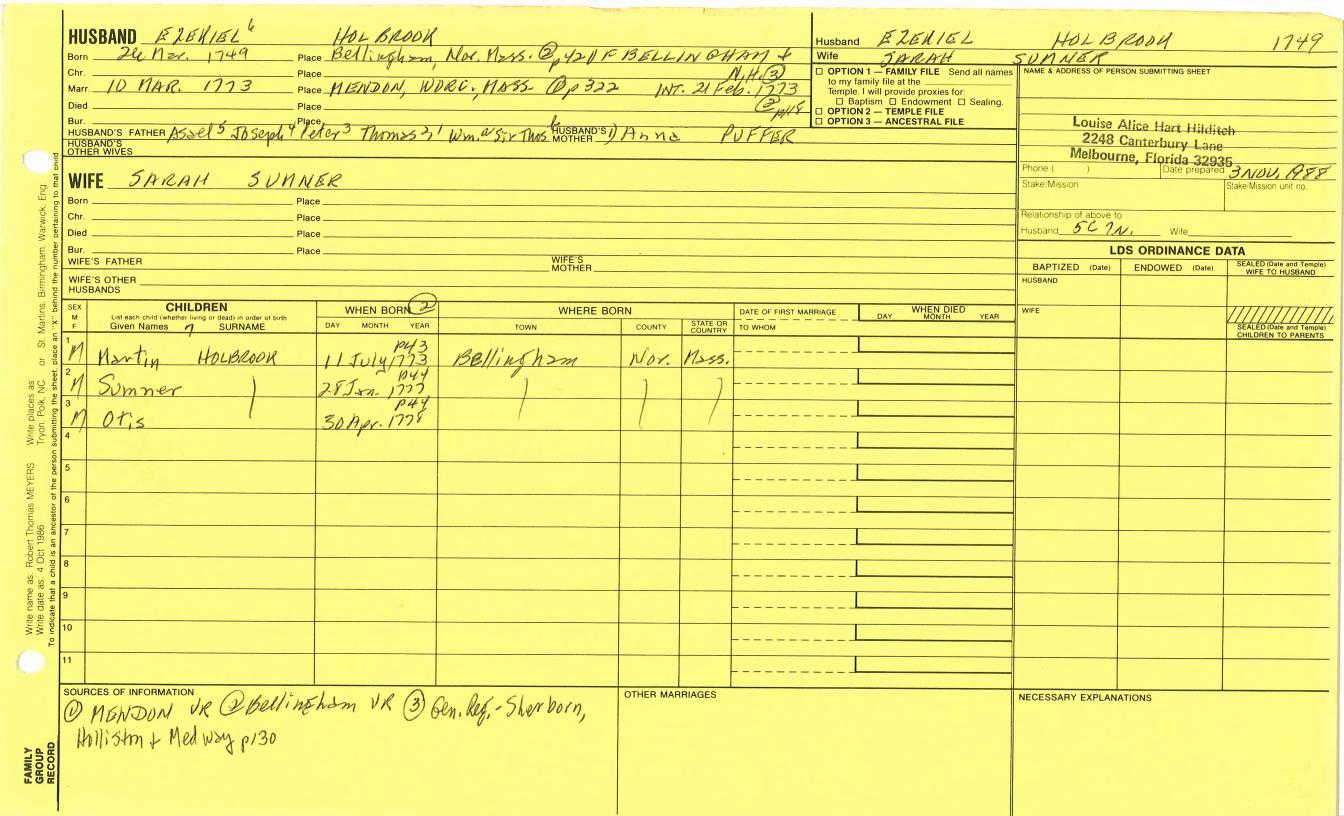 HUSBAND EZEKIEL 6 HOLBROOK
Born 26 Mar. 1749 Place Bellingham, Nor. Mass. ② p42 OF BELLINGHAM +
Chr. Place N.H. ③
Marr. 10 MAR. 1773 Place MENDON, WORC., MASS ① p322 INT. 21 Feb. 1773
Died Place ② p118
Bur. Place
HUSBAND'S FATHER Asael 5 Joseph 4 Peter 3 Thomas 2, 1 Wm. a Sir Thos b HUSBAND'S MOTHER 1) Anna PUFFER
HUSBAND'S OTHER WIVES
WIFE SARAH SUMNER
Born Place
Chr. Place
Died Place
Bur. Place
WIFE'S FATHER WIFE'S MOTHER
WIFE'S OTHER HUSBANDS
Husband EZEKIEL HOLBROOK 1749
Wife SARAH SUMNER
☐ OPTION 1 — FAMILY FILE Send all names
to my family file at the
Temple. I will provide proxies for:
☐ Baptism ☐ Endowment ☐ Sealing.
☐ OPTION 2 — TEMPLE FILE
☐ OPTION 3 — ANCESTRAL FILE
NAME & ADDRESS OF PERSON SUBMITTING SHEET
Louise Alice Hart Hilditch
2248 Canterbury Lane
Melbourne, Florida 32935
Phone ( ) Date prepared 3 NOV, 1988
Stake/Mission Stake/Mission unit no.
Relationship of above to
Husband 5C 7N. Wife
LDS ORDINANCE DATA
BAPTIZED (Date) ENDOWED (Date) SEALED (Date and Temple) WIFE TO HUSBAND
HUSBAND
WIFE
SEALED (Date and Temple) CHILDREN TO PARENTS
SEX M F CHILDREN WHEN BORN ② WHERE BORN DATE OF FIRST MARRIAGE WHEN DIED
List each child (whether living or dead) in order of birth
Given Names 7 SURNAME DAY MONTH YEAR TOWN COUNTY STATE OR COUNTRY TO WHOM DAY MONTH YEAR
1 p43
M Martin HOLBROOK 11 July 1773 Bellingham Nor. Mass.
2 p44
M Sumner ) 28 Jan. 1777 ) ) )
3 p44
M Otis 30 Apr. 1778
4
5
6
7
8
9
10
11
SOURCES OF INFORMATION
① MENDON VR ② Bellingham VR ③ Gen. Reg. - Sherborn,
Holliston + Medway p130
OTHER MARRIAGES
NECESSARY EXPLANATIONS
Write name as: Robert Thomas MEYERS Write places as: Tryon, Polk, NC or St. Martins, Birmingham, Warwick, Eng
Write date as: 4 Oct 1986
To indicate that a child is an ancestor of the person submitting the sheet, place an "X" behind the number pertaining to that child
FAMILY
GROUP
RECORD